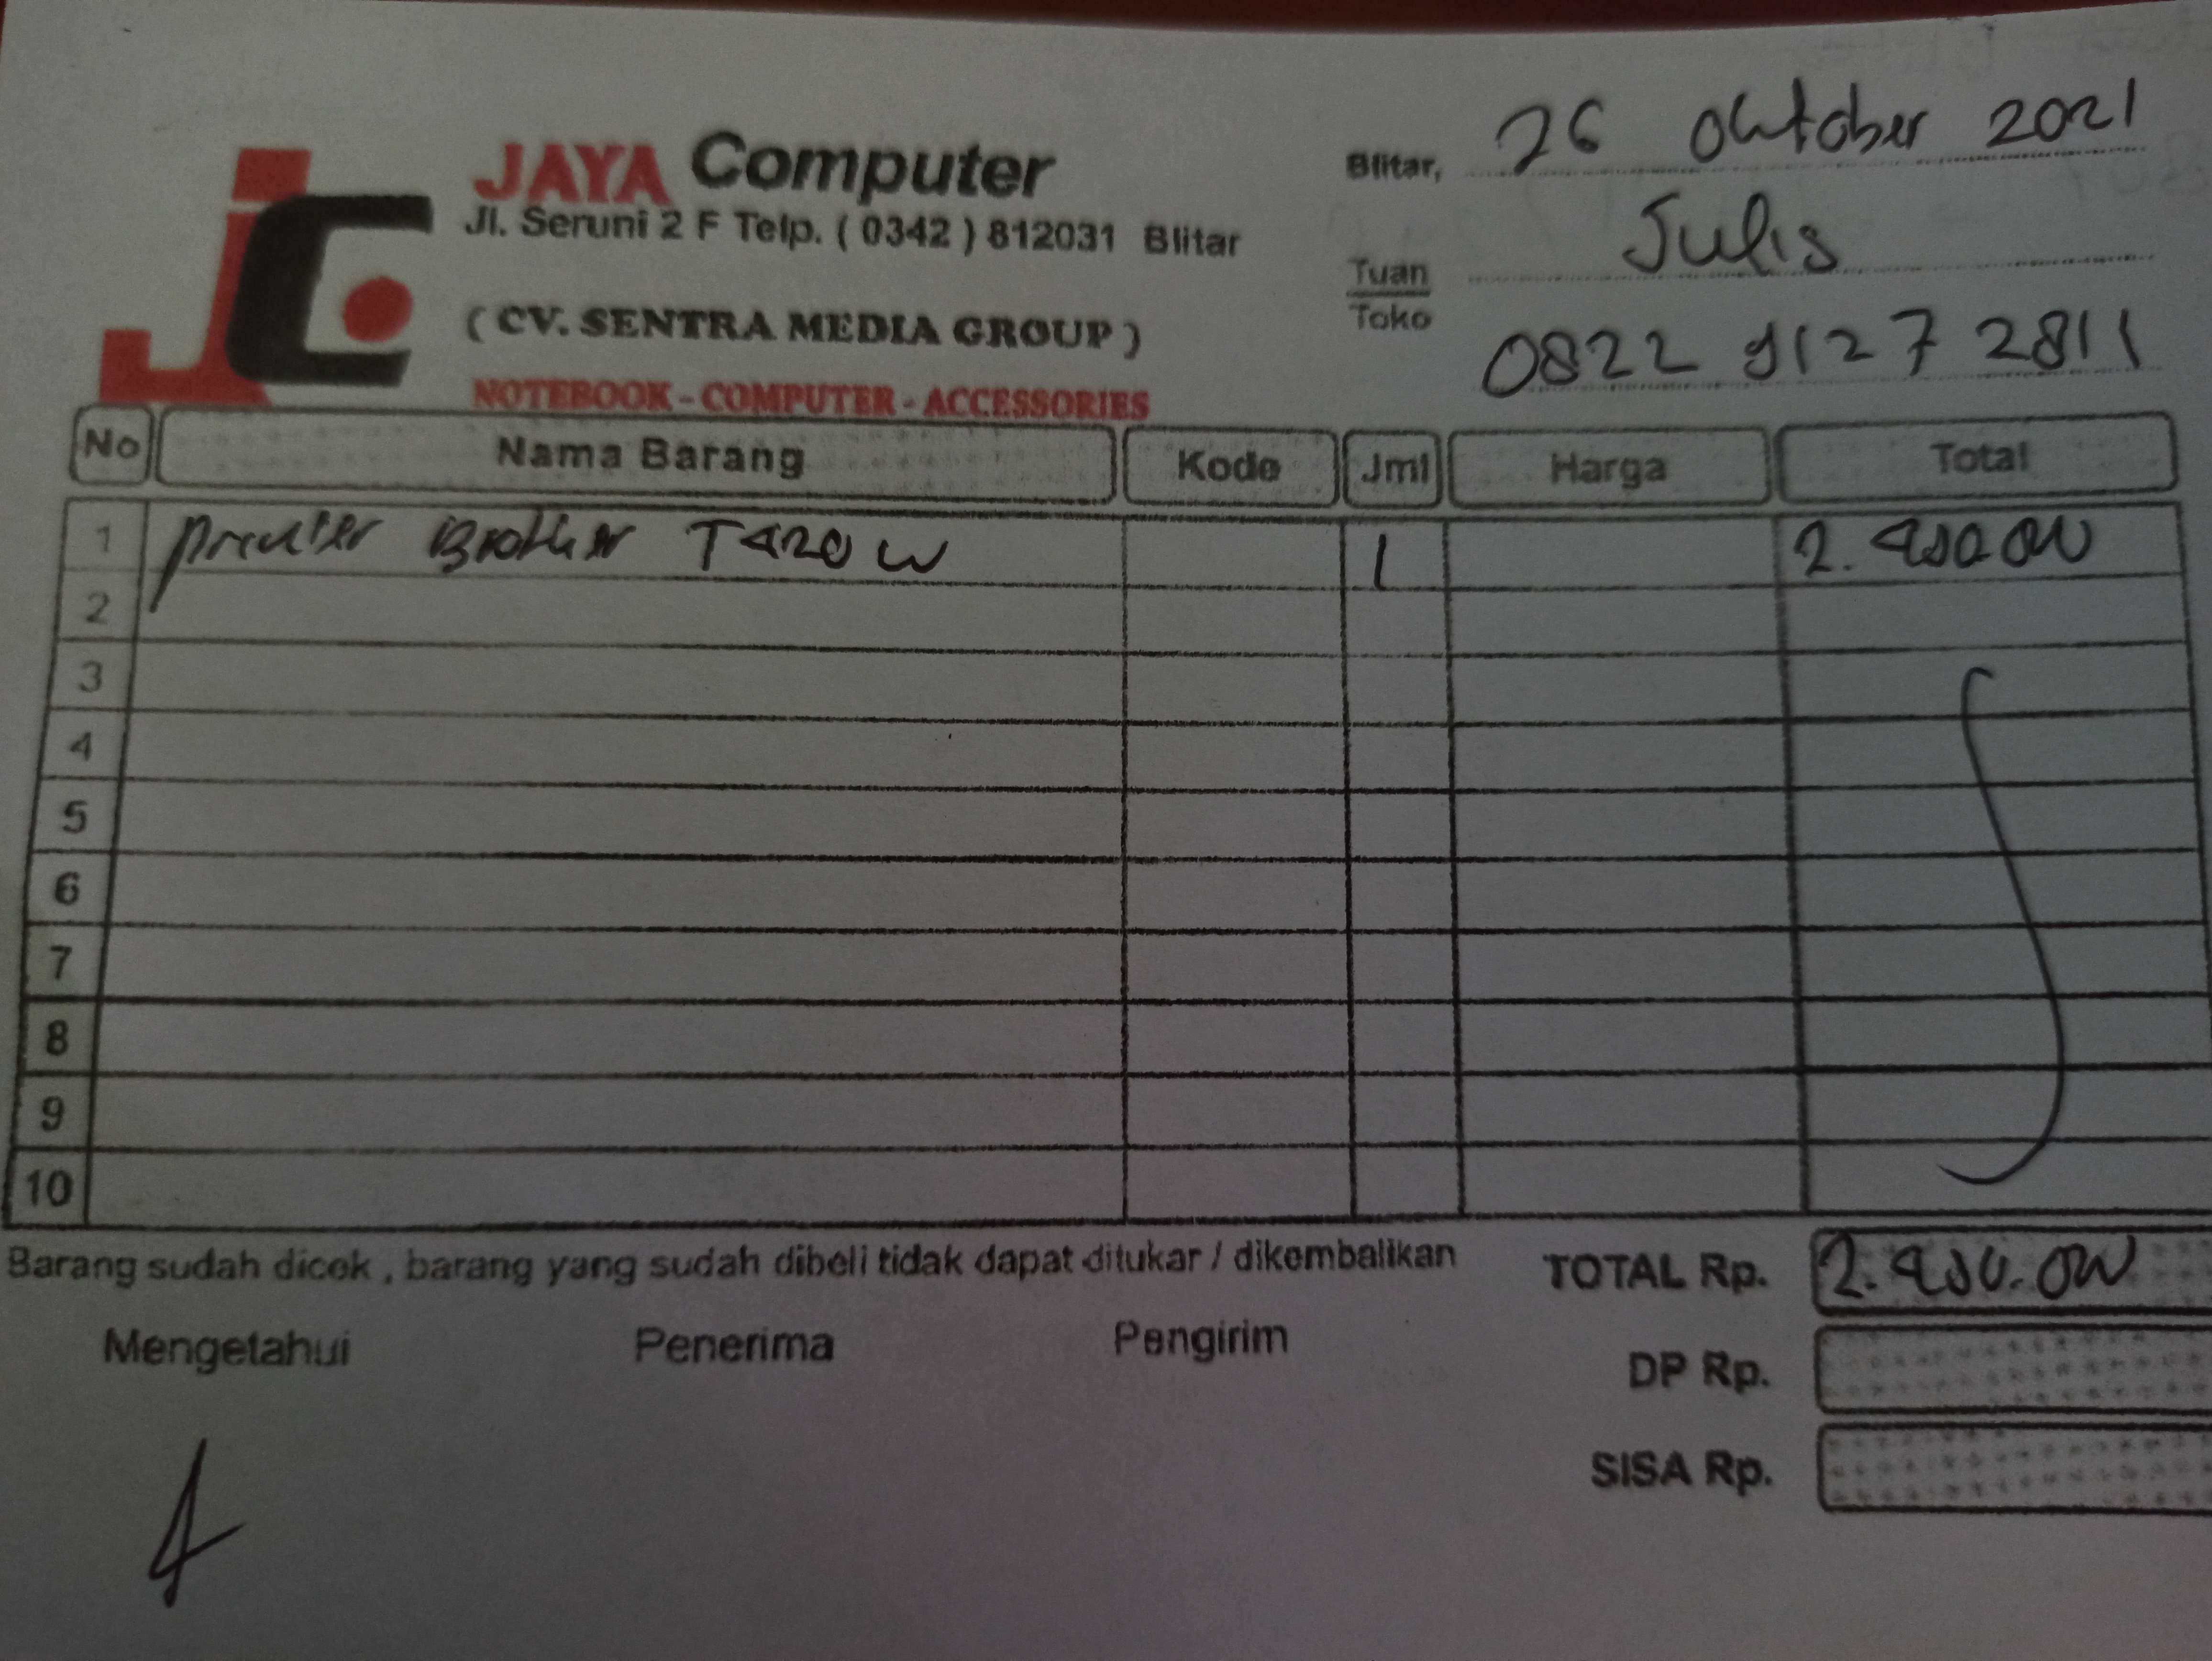 JAYA Computer
Jl. Seruni 2 F Telp. ( 0342 ) 812031 Blitar
( CV. SENTRA MEDIA GROUP )
NOTEBOOK - COMPUTER - ACCESSORIES
Blitar, 26 Oktober 2021
Tuan Julis
Toko
0822 9127 2811
No Nama Barang Kode Jml Harga Total
1 printer Brother T420 W 1 2.450.000
2
3
4
5
6
7
8
9
10
Barang sudah dicek , barang yang sudah dibeli tidak dapat ditukar / dikembalikan
TOTAL Rp. 2.450.000
Mengetahui Penerima Pengirim
DP Rp.
SISA Rp.